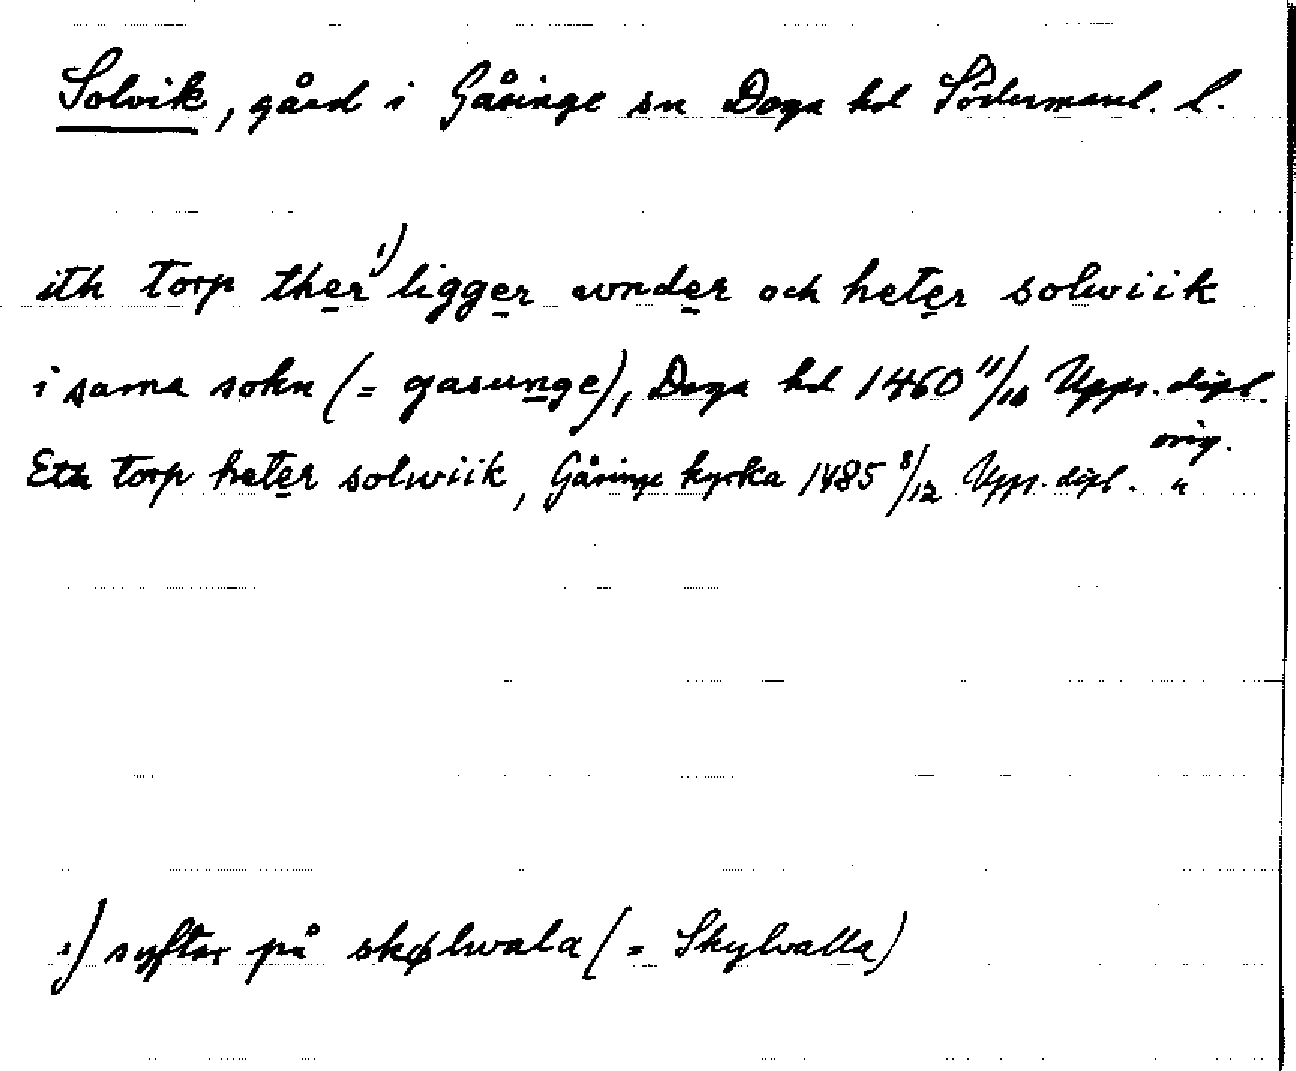 Solvik, gård i Gåsinge sn Daga hd Södermanl. l.
ith torp ther¹⁾ ligger wnder och heter solwiik
i sama sokn (= gasunge), Daga hd 1460 11/10 Upps. dipl. orig.
Eth torp heter solwiik, Gåsinge kyrka 1485 8/12 Upps. dipl. "
1) syftar på skølwala (= Skylvalla)